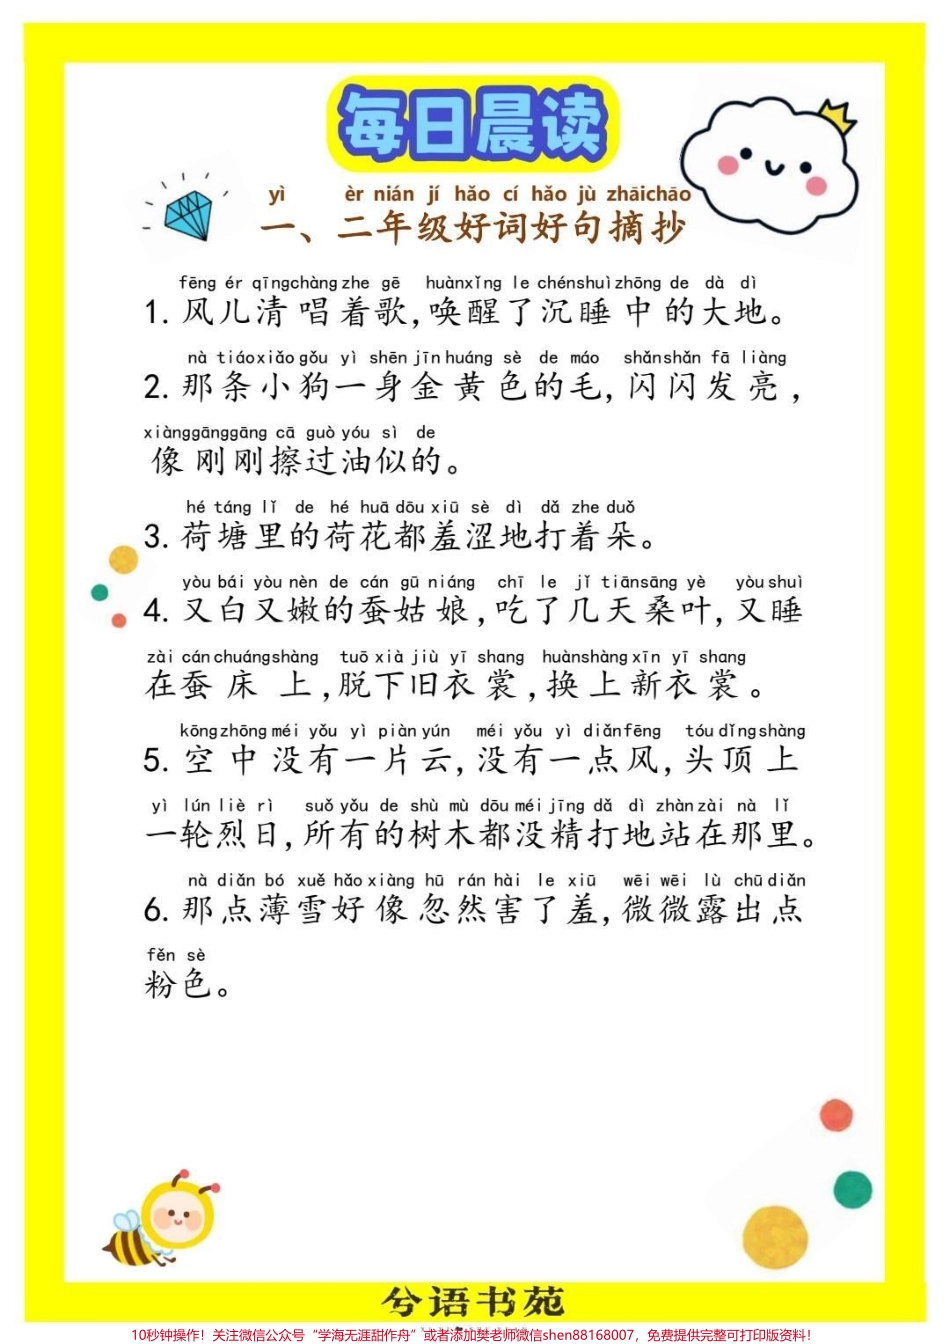 每日晨读
yì èr nián jí hǎo cí hǎo jù zhāichāo
一、二年级好词好句摘抄
fēng ér qīngchàng zhe gē huànxǐng le chénshuìzhōng de dà dì
1. 风儿清唱着歌,唤醒了沉睡中的大地。
nà tiáoxiǎogǒu yì shēn jīn huáng sè de máo shǎnshǎn fā liàng
2. 那条小狗一身金黄色的毛,闪闪发亮,
xiànggānggāng cā guò yóu sì de
像刚刚擦过油似的。
hé táng lǐ de hé huā dōu xiū sè dì dǎ zhe duǒ
3. 荷塘里的荷花都羞涩地打着朵。
yòu bái yòu nèn de cán gū niáng chī le jǐ tiānsāng yè yòu shuì
4. 又白又嫩的蚕姑娘,吃了几天桑叶,又睡
zài cán chuángshàng tuō xià jiù yī shang huànshàng xīn yī shang
在蚕床上,脱下旧衣裳,换上新衣裳。
kōngzhōng méi yǒu yì piàn yún méi yǒu yì diǎnfēng tóu dǐngshàng
5. 空中没有一片云,没有一点风,头顶上
yì lún liè rì suǒ yǒu de shù mù dōu méi jīng dǎ dì zhàn zài nà lǐ
一轮烈日,所有的树木都没精打地站在那里。
nà diǎn bó xuě hǎo xiàng hū rán hài le xiū wēi wēi lù chū diǎn
6. 那点薄雪好像忽然害了羞,微微露出点
fěn sè
粉色。
兮语书苑
10秒钟操作！关注微信公众号“学海无涯甜作舟”或者添加樊老师微信shen88168007，免费提供完整可打印版资料！